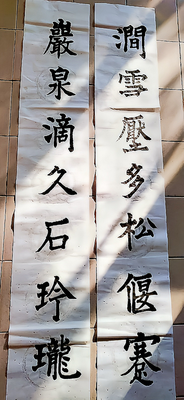 澗雪壓多松偃賽
巖泉滴久石玲瓏